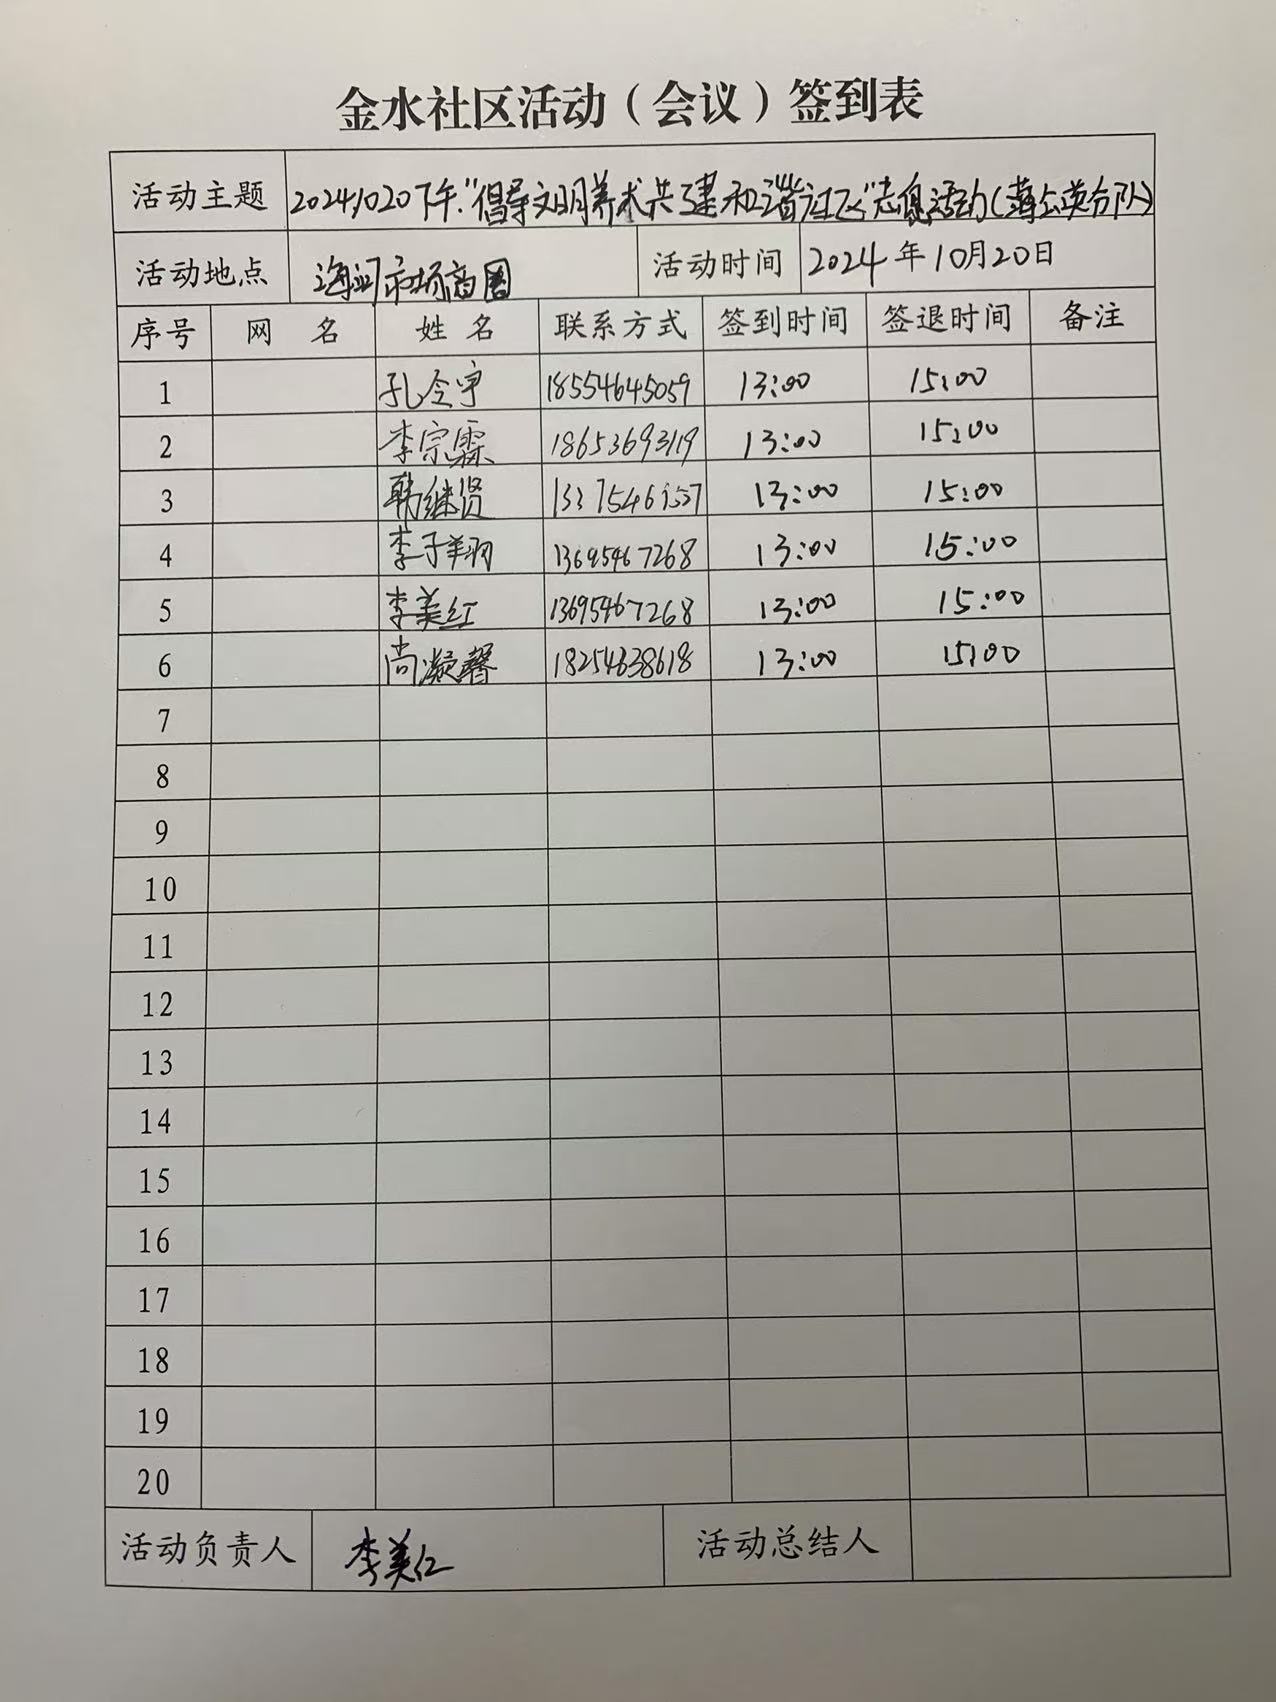 金水社区活动（会议）签到表
活动主题 20241020下午"倡导文明养犬共建和谐社区"志愿活动(蒲公英分队)
活动地点 海河市场商圈 活动时间 2024年10月20日
序号 网名 姓名 联系方式 签到时间 签退时间 备注
1 孔令宇 18554645059 13:00 15:00
2 李宗霖 1865369319 13:00 15:00
3 韩继贤 13:00 15:00
4 李子翔 13695467268 13:00 15:00
5 李美红 13695467268 13:00 15:00
6 尚凝馨 18254638618 13:00 15:00
7
8
9
10
11
12
13
14
15
16
17
18
19
20
活动负责人 李美红 活动总结人